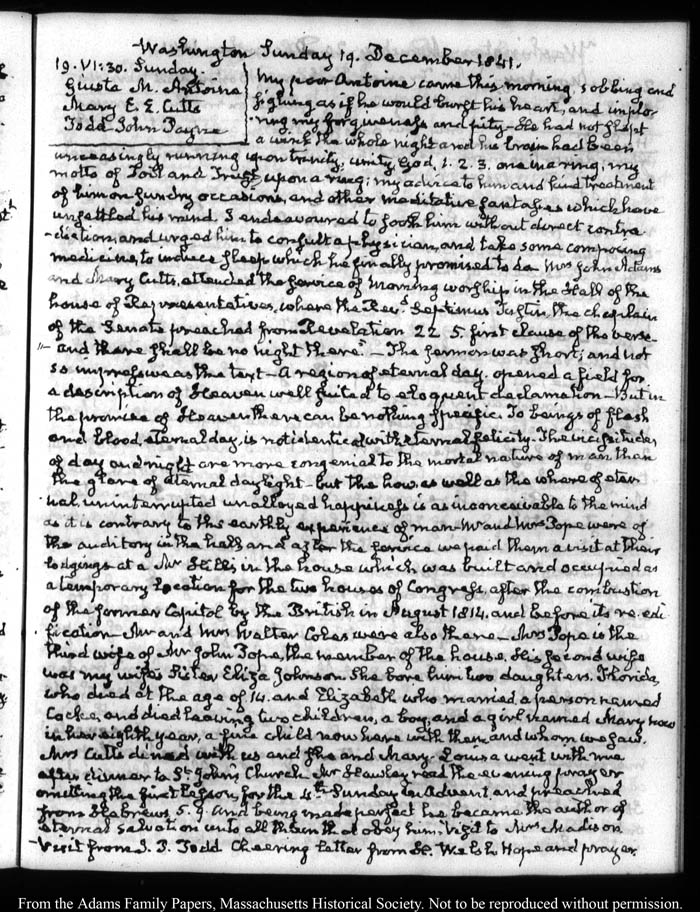 Washington Sunday 19. December 1841.
19. VI:30. Sunday.
Giusta M. Antoine
Mary E. E. Cutts
Todd John Payne
My poor Antoine came this morning, sobbing and
sighing as if he would burst his heart, and implo-
ring my forgiveness and pity—He had not slept
a wink the whole night and his brain had been
unceasingly running upon trinity, unity, God, 1. 2. 3, one in a ring; my
motto of Toil and Trust, upon a ring; my advice to him and kind treatment
of him on sundry occasions, and other meditative fantasies which have
unsettled his mind. I endeavoured to sooth him without direct contra
-diction, and urged him to consult a physician, and take some composing
medicine, to induce sleep which he finally promised to do. Mrs John Adams
and Mary Cutts, attended the service of morning worship in the Hall of the
house of Representatives, where the Revd. Septimus Tustin, the chaplain
of the Senate preached from Revelation 22. 5. first clause of the verse—
"and there shall be no night there."—The sermon was short; and not
so impressive as the text—A region of eternal day, opened a field for
a description of Heaven well suited to eloquent declamation—But in
the promise of Heaven there can be nothing specific. To beings of flesh
and blood, eternal day, is not identical with eternal felicity. The vicissitudes
of day and night are more congenial to the mortal nature of man than
the glare of eternal daylight—but the how as well as the where of eter
nal, uninterrupted unalloyed happiness is as inconceivable to the mind
as it is contrary to the earthly experience of man—Mr and Mrs Pope were of
the auditory in the hall, and after the service we paid them a visit at their
lodgings at a Mr Hill's, in the house which was built and occupied as
a temporary location for the two houses of Congress, after the combustion
of the former Capitol by the British in August 1814. and before its re-edi
fication—Mr and Mrs Walter Coles were also there—Mrs Pope is the
third wife of Mr John Pope, the member of the house. His second wife
was my wife's Sister Eliza Johnson. She bore him two daughters. Florida,
who died at the age of 14. and Elizabeth who married a person named
Cocke, and died leaving two children, a boy, and a girl named Mary now
in her eighth year, a fine child now here with them, and whom we saw.
Mrs Cutts dined with us and she and Mary-Louisa went with me
after dinner to St. John's Church. Mr Hawley read the evening prayer
omitting the first Lesson, for the 4th. Sunday in Advent and preached
from Hebrews 5. 9. And being made perfect he became the author of
eternal salvation unto all them that obey him. Visit to Mrs Madison
-Visit from J. P. Todd Cheering letter from Welsh Hope and prayer.
From the Adams Family Papers, Massachusetts Historical Society. Not to be reproduced without permission.